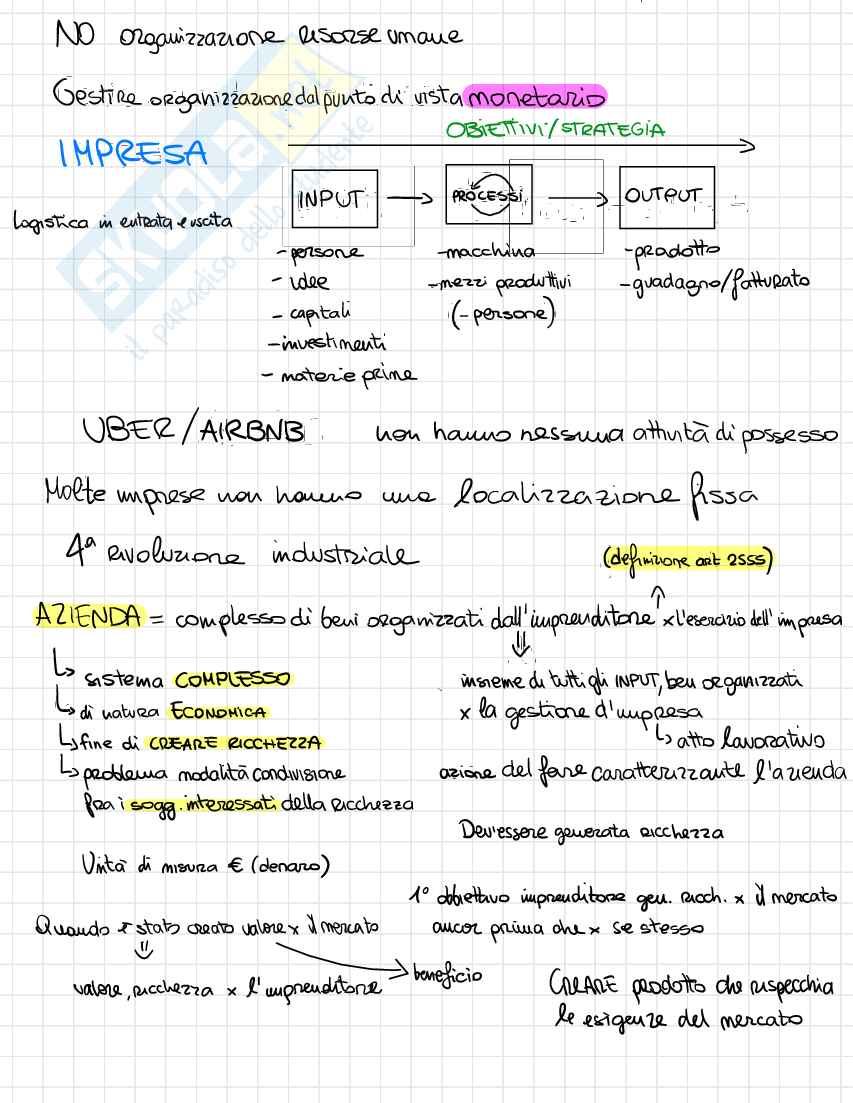 NO organizzazione risorse umane
Gestire organizzazione dal punto di vista monetario
OBIETTIVI/STRATEGIA
IMPRESA
INPUT
PROCESSI
OUTPUT
Logistica in entrata e uscita
- persone
- idee
- capitali
- investimenti
- materie prime
- macchina
- mezzi produttivi
(- persone)
- prodotto
- guadagno/fatturato
UBER/AIRBNB non hanno nessuna attività di possesso
Molte imprese non hanno una localizzazione fissa
4ª rivoluzione industriale
(definizione art 2555)
AZIENDA = complesso di beni organizzati dall'imprenditore x l'esercizio dell'impresa
↳ sistema COMPLESSO
↳ di natura ECONOMICA
↳ fine di CREARE RICCHEZZA
↳ problema modalità condivisione
fra i sogg. interessati della ricchezza
insieme di tutti gli INPUT, beni organizzati
x la gestione d'impresa
↳ atto lavorativo
azione del fare caratterizzante l'azienda
Dev'essere generata ricchezza
Unità di misura € (denaro)
1° obbiettivo imprenditore gen. ricch. x il mercato
ancor prima che x se stesso
Quando è stato creato valore x il mercato
valore, ricchezza x l'imprenditore
beneficio
CREARE prodotto che rispecchia
le esigenze del mercato
SKUOLA.net
il paradiso dello studente